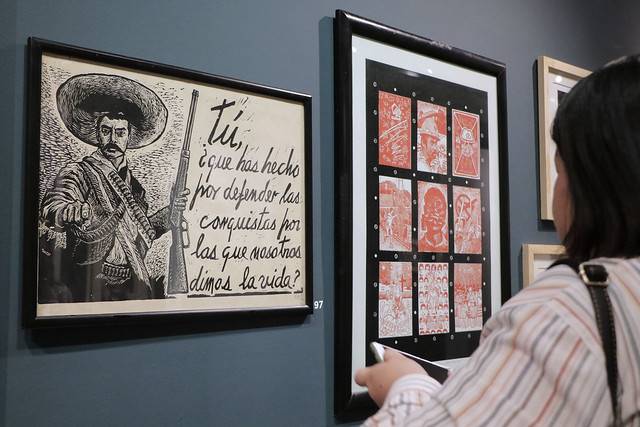 Tú,
¿que has hecho
por defender las
conquistas por
las que nosotros
dimos la vida?
97